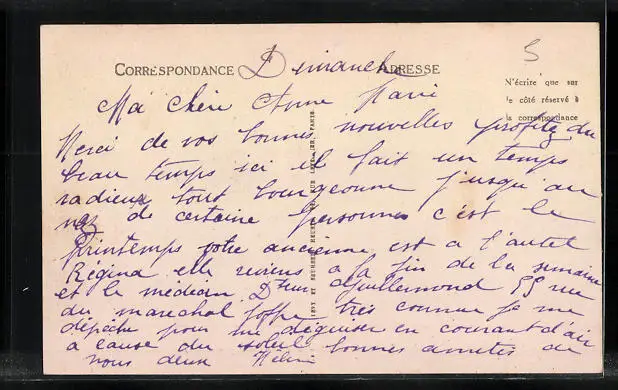 CORRESPONDANCE
Dimanche
ADRESSE
5
N'écrire que sur
le côté réservé à
la correspondance
Ma chère Anne Marie
Merci de vos bonnes nouvelles profitez du
beau temps ici il fait un temps
radieux tout bourgeonne jusqu'au
nez de certaine personnes c'est le
printemps votre ancienne est a l'autel
Régina elle reviens a la fin de la semaine
et le médecin Dteur Guillemond 55 rue
du marechal Joffre très connue je me
dépèche pour me déguiser en courant d'air
a cause du soleil bonnes amities de
nous deux Hélène